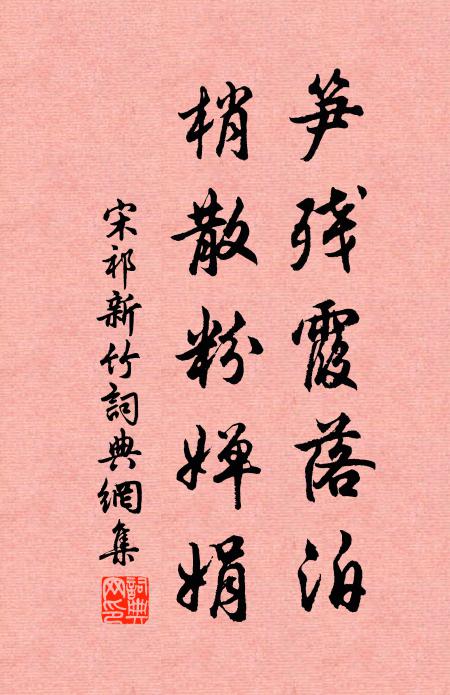 笋残霞落泊
梢散粉婵娟
宋祁新竹詞典網集
詞典网印